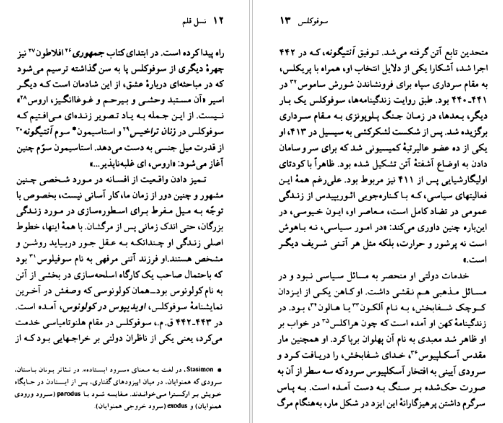 ۱۲ نسل قلم
راه پیدا کرده است. در ابتدای کتاب جمهوری ۲۶ افلاطون ۲۷ نیز
چهرهٔ دیگری از سوفوکلس پا به سن گذاشته ترسیم می‌شود
که در مباحثه‌ای دربارهٔ عشق، از این شادمان است که دیگر
اسیر «آن مستبد وحشی و بیرحم و غوغاانگیز، اروس ۲۸»
نیست. از این جمله به یاد تصویر زنده‌ای می‌افتیم که
سوفوکلس در زنان تراخیس ۲۹ و استاسیمون* سوم آنتیگونه ۳۰
از قدرت میل جنسی به دست می‌دهد. استاسیمون سوّم چنین
آغاز می‌شود: «اروس، ای غلبه‌ناپذیر...»
تمیز دادن واقعیت از افسانه در مورد شخصی چنین
مشهور و چنین دور از زمان ما، کار آسانی نیست، بخصوص با
توجّه به میل مفرط برای اسطوره‌سازی در مورد زندگی
بزرگان، حتی اندک زمانی پس از مرگشان. با همهٔ اینها، خطوط
اصلی زندگی او چندانکه به عقل جور دربیاید روشن و
مشخص هستند. او فرزند آتنی مرفهی به نام سوفیلوس ۳۱ بود
که باحتمال صاحب یک کارگاه اسلحه‌سازی در بخشی از آتن
به نام کولونوس بود—همان کولونوسی که وصفش در آخرین
نمایشنامهٔ سوفوکلس، اودیپوس در کولونوس، آمده است.
در ۴۴۳-۴۴۲ ق.م.، سوفوکلس در مقام هلنوتامیاسی خدمت
می‌کرد، یعنی یکی از ناظران دولتی بر خراجهایی بود که از
* Stasimon، در لغت به معنای «سرود ایستاده». در تئاتر یونان باستان،
سرودی که همنوایان، در میان اپیزودهای گفتاری، پس از ایستادن در جایگاه
خویش بر ارکسترا می‌خواندند. مقایسه شود با parodus (سرود ورودی
همنوایان) و exodus (سرود خروجی همنوایان).
سوفوکلس ۱۳
متحدین تابع آتن گرفته می‌شد. توفیق آنتیگونه، که در ۴۴۲
اجرا شد، آشکارا یکی از دلایل انتخاب او، همراه با پریکلس،
به مقام سرداری سپاه برای فرونشاندن شورش ساموس ۳۲ در
۴۴۱-۴۴۰ بود. طبق روایت زندگینامه‌ها، سوفوکلس یک بار
دیگر، بعدها، در زمان جنگ پلوپونزی به مقام سرداری
برگزیده شد. پس از شکست لشکرکشی به سیسیل در ۴۱۳، او
یکی از ده عضو عالیرتبهٔ کمیسیونی شد که برای سر و سامان
دادن به اوضاع آشفتهٔ آتن تشکیل شده بود. ظاهراً با کودتای
اولیگارشیایی پس از ۴۱۱ نیز مربوط بود. علی‌رغم همهٔ این
فعالیتهای سیاسی، که با کناره‌جویی ائوریپیدس از زندگی
عمومی در تضاد کامل است، معاصر او، ایون خیوسی، در
این‌باره چنین داوری می‌کند: «در امور سیاسی، نه باهوش
است نه پرشور و حرارت، بلکه مثل هر آتنی شریف دیگر
است.»
خدمات دولتی او منحصر به مسائل سیاسی نبود و در
مسائل مذهبی هم نقشی داشت. او کاهن یکی از ایزدان
کوچک شفابخش، به نام آلکون ۳۳ یا هالون ۳۴، بود. در
زندگینامهٔ کهن او آمده است که چون هراکلس ۳۵ در خواب بر
او ظاهر شد معبدی به نام آن پهلوان برپا کرد. او همچنین مار
مقدس آسکلپیوس ۳۶، خدای شفابخش، را دریافت کرد و
سرودی آیینی به افتخار آسکلپیوس سرود که سه سطر از آن به
صورت حک‌شده بر سنگ به دست آمده است. به پاس
سرگرم داشتن پرهیزگارانهٔ این ایزد در شکل مار، به‌هنگام مرگ